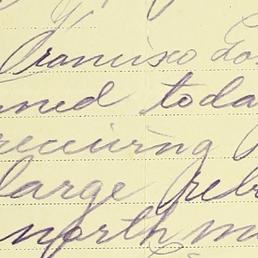 Francisco Los
ned today
receiving
large reb
north m